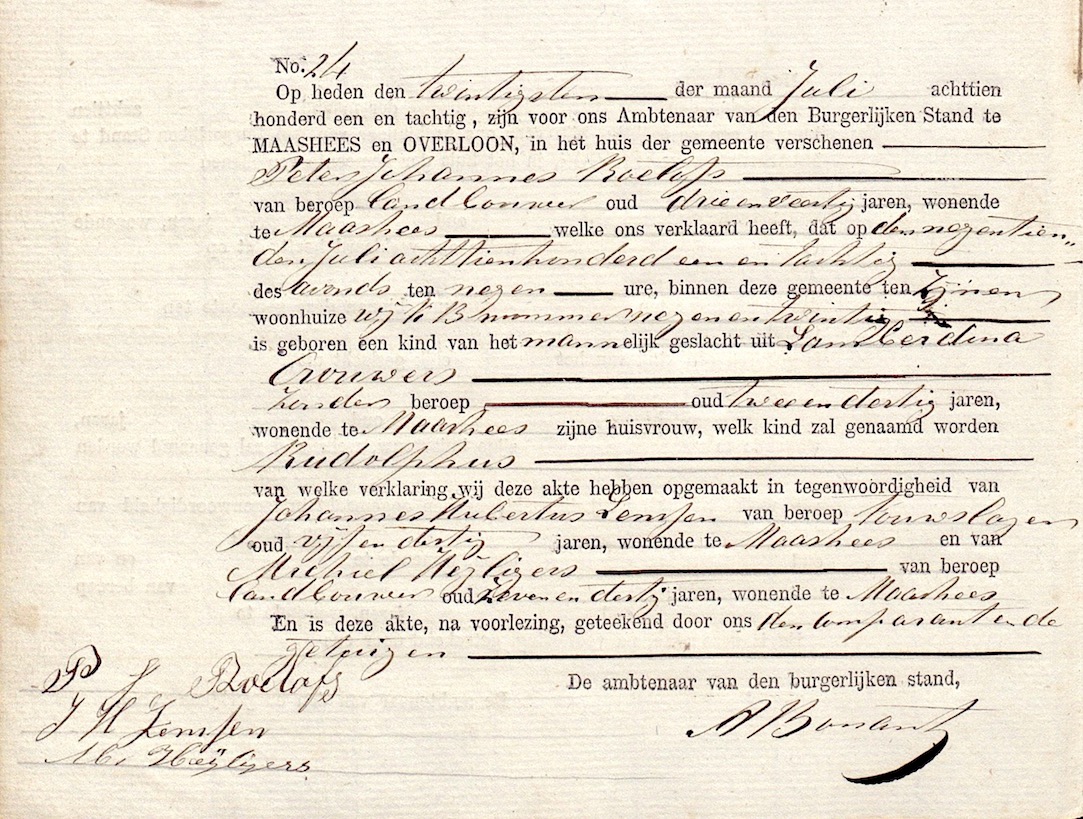 No. 24
Op heden den twintigsten der maand Juli achttien
honderd een en tachtig, zijn voor ons Ambtenaar van den Burgerlijken Stand te
MAASHEES en OVERLOON, in het huis der gemeente verschenen
Peter Johannes Roelofs
van beroep landbouwer oud drie en veertig jaren, wonende
te Maashees welke ons verklaard heeft, dat op den negentien„
den Juli achttienhonderd een en tachtig
des avonds ten negen ure, binnen deze gemeente ten zijnen
woonhuize wijk B nummer negen en twintig
is geboren een kind van het mannelijk geslacht uit Lamberdina
Crouwers
zonder beroep oud twee en dertig jaren,
wonende te Maashees zijne huisvrouw, welk kind zal genaamd worden
Rudolphus
van welke verklaring wij deze akte hebben opgemaakt in tegenwoordigheid van
Johannes Hubertus Lempen van beroep touwslager
oud vijf en dertig jaren, wonende te Maashees en van
Michiel Heijligers van beroep
landbouwer oud zeven en dertig jaren, wonende te Maashees
En is deze akte, na voorlezing, geteekend door ons den comparant en de
getuigen
De ambtenaar van den burgerlijken stand,
P J Roelofs
J H Lempen
M. Heijligers